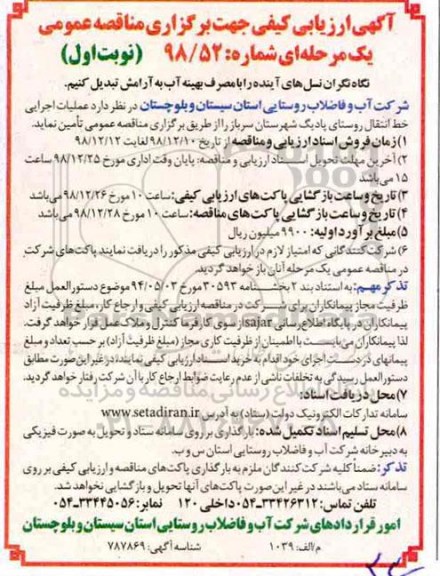 آگهی ارزیابی کیفی جهت برگزاری مناقصه عمومی
یک مرحله‌ای شماره: ۹۸/۵۲ (نوبت اول)
نگاه نگران نسل‌های آینده را با مصرف بهینه آب به آرامش تبدیل کنیم.
شرکت آب و فاضلاب روستایی استان سیستان و بلوچستان در نظر دارد عملیات اجرایی
خط انتقال روستای پادیگ شهرستان سرباز را از طریق برگزاری مناقصه عمومی تأمین نماید.
۱) زمان فروش اسناد ارزیابی و مناقصه: از تاریخ ۹۸/۱۲/۱۰ لغایت ۹۸/۱۲/۱۲
۲) آخرین مهلت تحویل اسناد ارزیابی و مناقصه: پایان وقت اداری مورخ ۹۸/۱۲/۲۵ ساعت
۱۵ می‌باشد
۳) تاریخ و ساعت بازگشایی پاکت‌های ارزیابی کیفی: ساعت ۱۰ مورخ ۹۸/۱۲/۲۶ می‌باشد
۴) تاریخ و ساعت بازگشایی پاکت‌های مناقصه: ساعت ۱۰ مورخ ۹۸/۱۲/۲۸ می‌باشد
۵) مبلغ برآورد اولیه: ۹۹۰۰ میلیون ریال
۶) شرکت کنندگانی که امتیاز لازم در ارزیابی کیفی مذکور را دریافت نمایند پاکت‌های شرکت
در مناقصه عمومی یک مرحله آنان باز خواهد گردید.
تذکر مهم: به استناد بند ۲ بخشنامه ۳۰۵۹۳ مورخ ۹۴/۰۵/۰۳ موضوع دستورالعمل مبلغ
ظرفیت مجاز پیمانکاران برای شرکت در مناقصه ارزیابی کیفی و ارجاع کار، مبلغ ظرفیت آزاد
پیمانکاران در پایگاه اطلاع رسانی sajar از سوی کارفرما کنترل و ملاک عمل قرار خواهد گرفت.
لذا پیمانکاران می‌بایست با اطمینان از ظرفیت کاری مجاز (مبلغ ظرفیت آزاد) بر حسب تعداد و مبلغ
پیمانهای در دست اجرای خود اقدام به خرید اسناد ارزیابی کیفی نمایند، در غیر این صورت مطابق
دستورالعمل رسیدگی به تخلفات ناشی از عدم رعایت ضوابط ارجاع کار با آن شرکت رفتار خواهد گردید.
۷) محل دریافت اسناد:
سامانه تدارکات الکترونیک دولت (ستاد) به آدرس www.setadiran.ir
۸) محل تسلیم اسناد تکمیل شده: بارگذاری بر روی سامانه ستاد و تحویل به صورت فیزیکی
به دبیرخانه شرکت آب و فاضلاب روستایی استان س و ب.
تذکر: ضمناً کلیه شرکت کنندگان ملزم به بارگذاری پاکت‌های مناقصه و ارزیابی کیفی بر روی
سامانه ستاد می‌باشند در غیر این صورت پاکت‌های آنها تحویل و بازگشایی نخواهد شد.
تلفن تماس: ۳۳۴۲۶۳۱۲-۰۵۴ داخلی ۱۲۰ نمابر: ۳۳۴۴۵۰۵۶-۰۵۴
امور قراردادهای شرکت آب و فاضلاب روستایی استان سیستان و بلوچستان
م/الف: ۱۰۳۹ شناسه آگهی: ۷۸۷۸۶۹